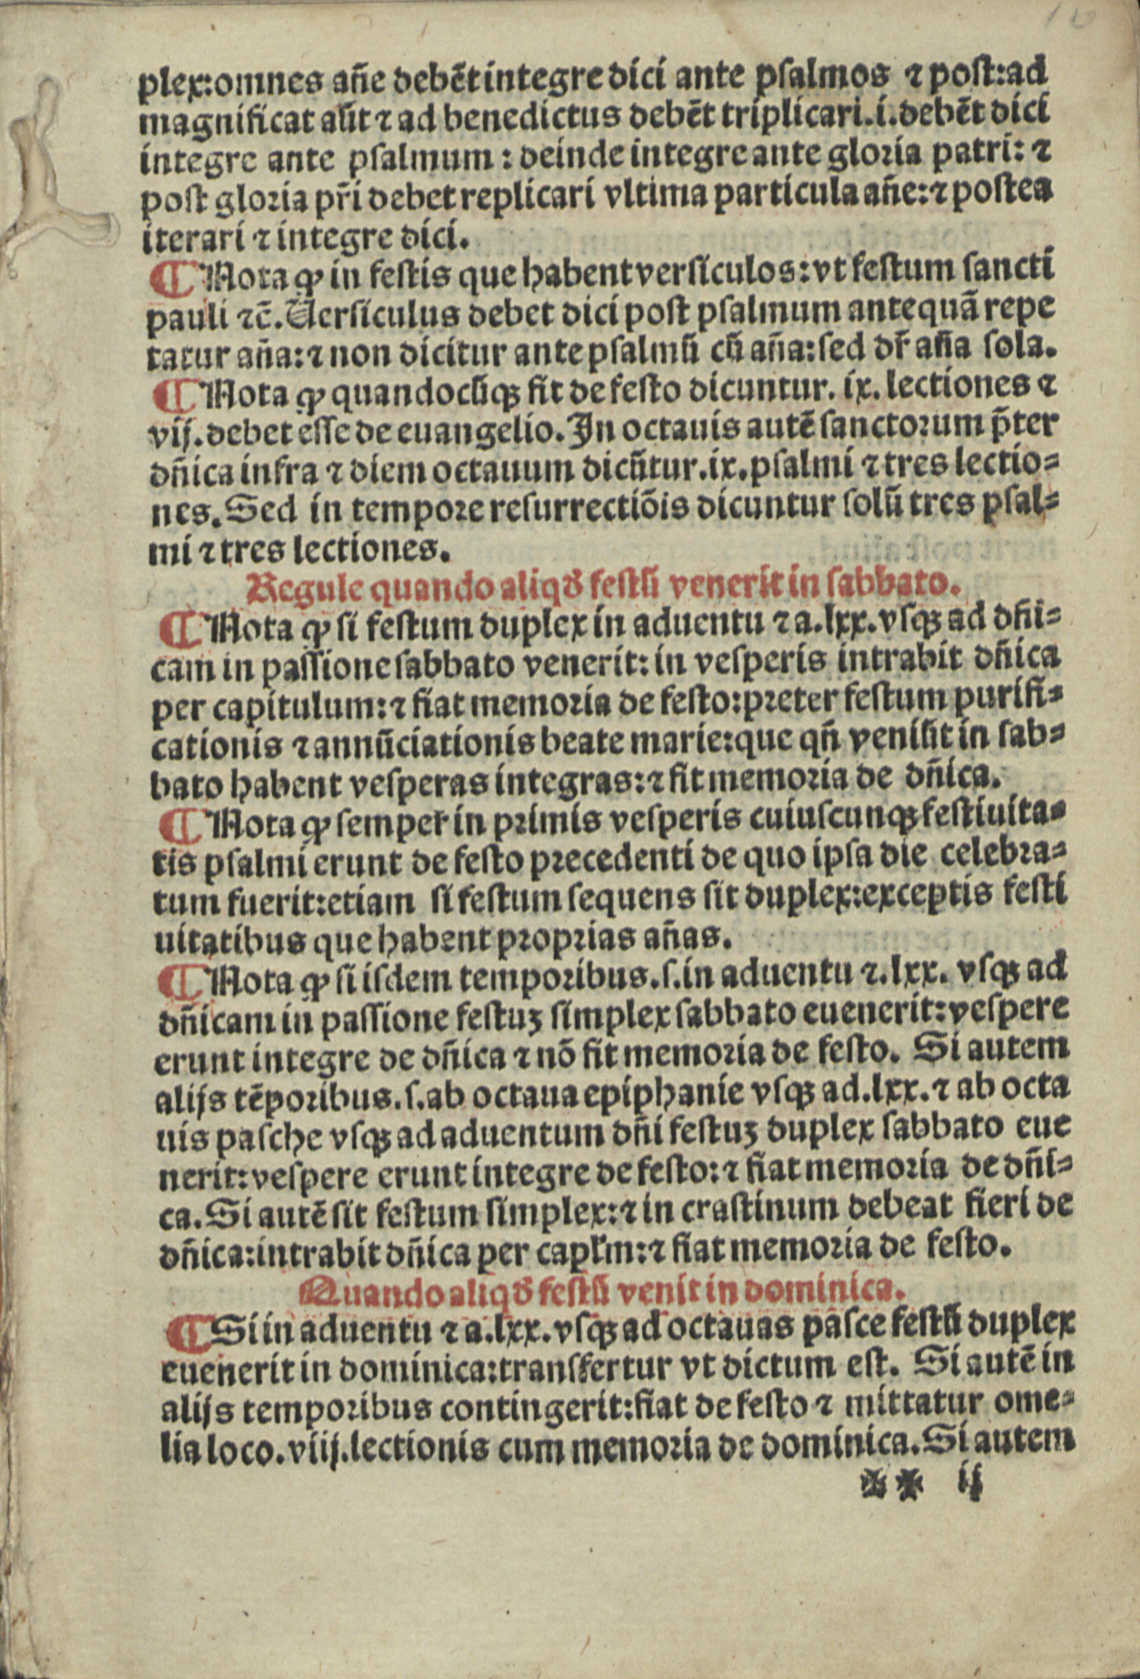 10
plex:omnes añe debēt integre dici ante psalmos ⁊ post:ad
magnificat aūt ⁊ ad benedictus debēt triplicari.i.debēt dici
integre ante psalmum : deinde integre ante gloria patri: ⁊
post gloria pr̄i debet replicari vltima particula añe:⁊ postea
iterari ⁊ integre dici.
¶ Nota ꝙ in festis que habent versiculos:vt festum sancti
pauli ⁊c̄. Versiculus debet dici post psalmum antequā repe
tatur aña:⁊ non dicitur ante psalmū cū aña:sed dr̄ aña sola.
¶ Nota ꝙ quandocūqꝫ fit de festo dicuntur. ix. lectiones ⁊
vij.debet esse de euangelio. In octauis autē sanctorum p̄ter
dñica infra ⁊ diem octauum dicūtur.ix.psalmi ⁊ tres lectio⸗
nes. Sed in tempore resurrectiōis dicuntur solū tres psal⸗
mi ⁊ tres lectiones.
Regule quando aliqđ festū venerit in sabbato.
¶ Nota ꝙ si festum duplex in aduentu ⁊ a.lxx.vsqꝫ ad dñi⸗
cam in passione sabbato venerit: in vesperis intrabit dñica
per capitulum:⁊ fiat memoria de festo:preter festum purifi⸗
cationis ⁊ annūciationis beate marie:que qñ veniūt in sab⸗
bato habent vesperas integras:⁊ fit memoria de dñica.
¶ Nota ꝙ semper in primis vesperis cuiuscunqꝫ festiuita⸗
tis psalmi erunt de festo precedenti de quo ipsa die celebra⸗
tum fuerit:etiam si festum sequens sit duplex:exceptis festi
uitatibus que habent proprias añas.
¶ Nota ꝙ si isdem temporibus.s.in aduentu ⁊.lxx. vsqꝫ ad
dñicam in passione festuꝫ simplex sabbato euenerit:vespere
erunt integre de dñica ⁊ nō fit memoria de festo. Si autem
alijs tēporibus.s.ab octaua epiphanie vsqꝫ ad.lxx.⁊ ab octa
uis pasche vsqꝫ ad aduentum dñi festuꝫ duplex sabbato eue
nerit:vespere erunt integre de festo:⁊ fiat memoria de dñi⸗
ca. Si autē sit festum simplex:⁊ in crastinum debeat fieri de
dñica:intrabit dñica per capłm:⁊ fiat memoria de festo.
Quando aliqđ festū venit in dominica.
¶ Si in aduentu ⁊ a.lxx.vsqꝫ ad octauas pasce festū duplex
euenerit in dominica:transfertur vt dictum est. Si autē in
alijs temporibus contingerit:fiat de festo ⁊ mittatur ome⸗
lia loco.viij.lectionis cum memoria de dominica. Si autem
✠✠ ij